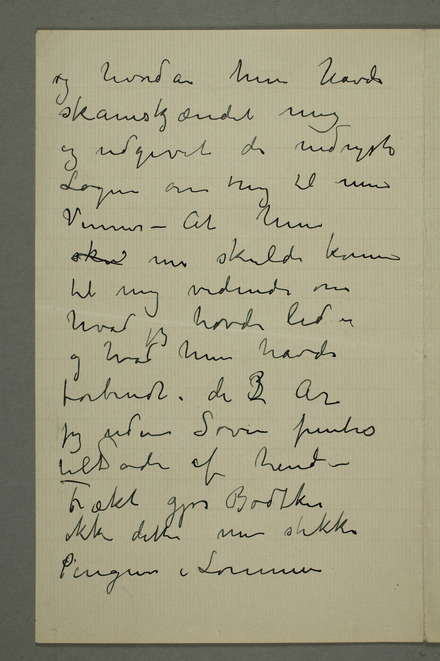 og hvordan hun havde
skamskjændet mig
og udgivet de nedrigste
Løgne om mig til mine
Venner – At hun
nu skulde komme
til mig vidende om
hvad jeg havde lidt
og hvad hun havde
forbrudt i de 3 Ar
jeg uden Søvn
af hende –
Frækt gjør Bødtker
ikke dette men stikke
Pengene i Lommen